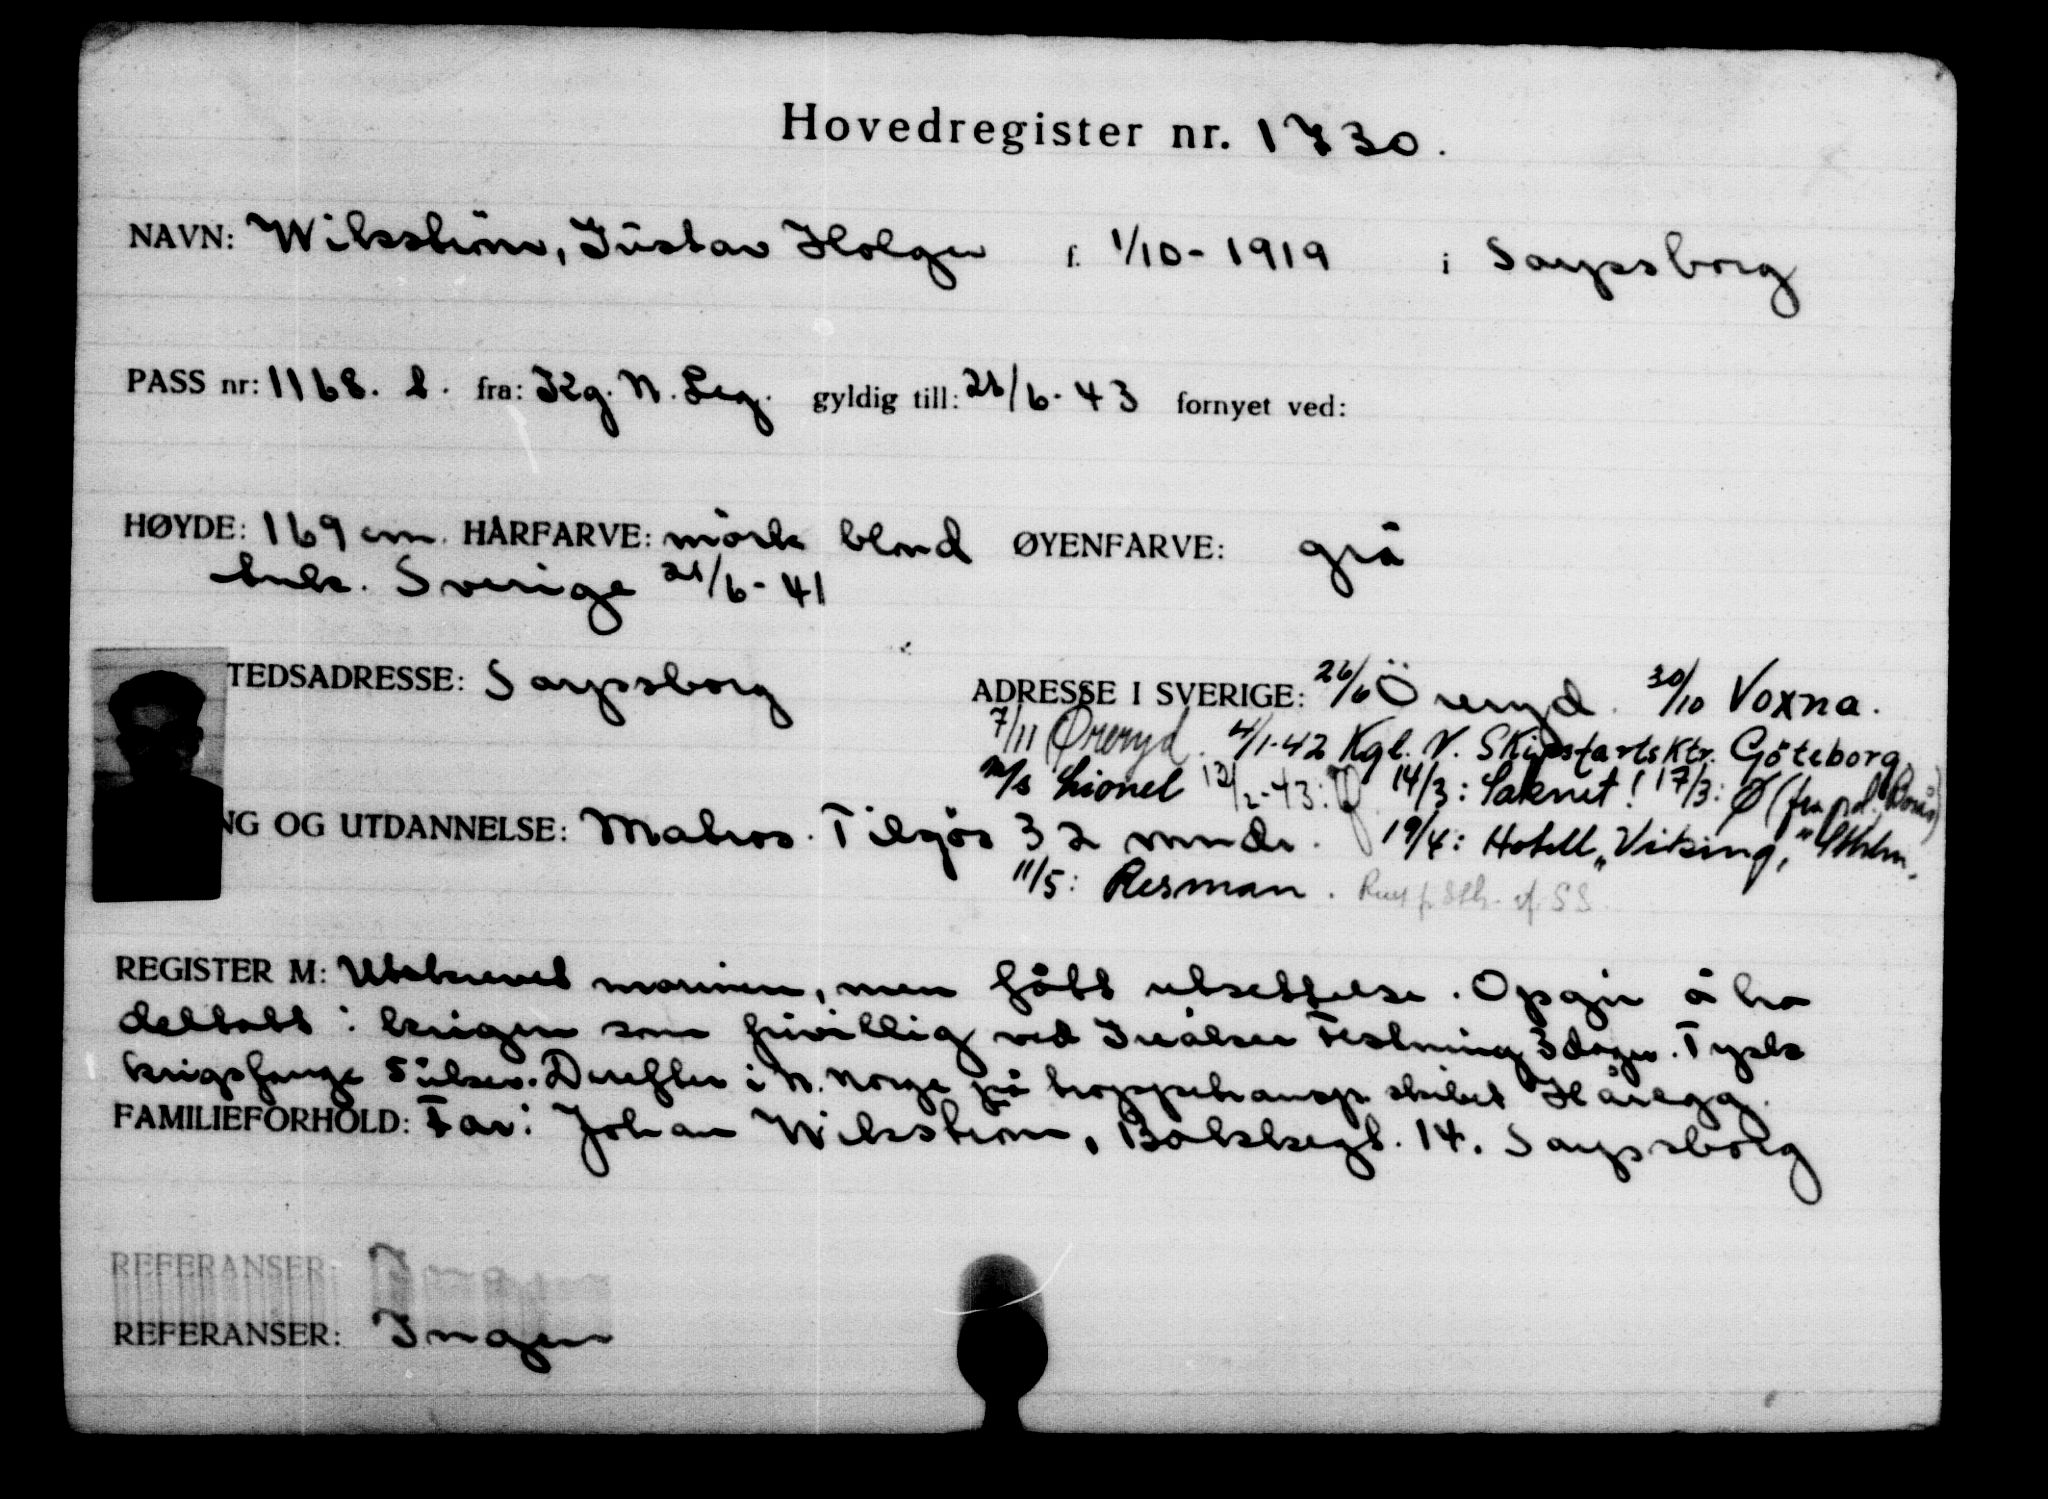 Hovedregister nr. 1730.
NAVN: Wikström, Gustav Holger f. 1/10-1919 i Sarpsborg
PASS nr: 1168. fra: Kg. N. Leg. gyldig till: 21/6-43 fornyet ved:
HØYDE: 169 cm. HÅRFARVE: mörk blond ØYENFARVE: grå
Sverige 21/6-41
TEDSADRESSE: Sarpsborg ADRESSE I SVERIGE: 26/6 Öreryd. 30/10 Voxna.
7/11 Øreryd. 4/1-42 Kgl. N. Skipsfartsktr. Göteborg
M/s Lionel 12/2-43: Ø 14/3: Saknet! 17/3: Ø (fra p.d. Borås)
NG OG UTDANNELSE: Matros. Tilgös 32 mndr. 19/4: Hotell „Viking," Sthlm.
11/5: Resman.
REGISTER M: Utskrevet marinen, men fått utsettelse. Opgir å ha
deltatt i krigen som frivillig ved Greåker Festning 3 dager. Tysk
krigsfange 5 uker. Derefter i N. Norge på troppetransp. skibet Håregg.
FAMILIEFORHOLD: Far: Johan Wikström, 14. Sarpsborg
REFERANSER:
REFERANSER: Ingen